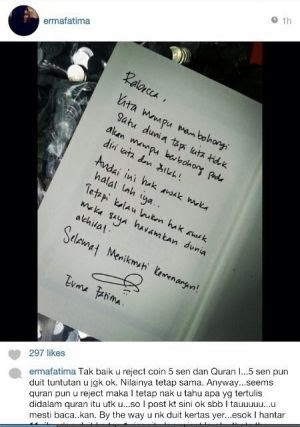 ermafatima
1h
Rabecca,
Kita mampu membohongi
satu dunia tapi kita tidak
akan mampu berbohong pada
diri kita dan ALLAH!
Andai ini hak awak maka
halal lah iya..
Tetapi kalau bukan hak awak
maka saya haramkan dunia
akhirat.
Selamat Menikmati kemenangan!
Erma Fatima.
297 likes
ermafatima Tak baik u reject coin 5 sen dan Quran I...5 sen pun
duit tuntutan u jgk ok. Nilainya tetap sama. Anyway...seems
quran pun u reject maka I tetap nak u tahu apa yg tertulis
didalam quran itu utk u...so I post kt sini ok sbb I tauuuuu..u
mesti baca..kan. By the way u nk duit kertas yer...esok I hantar